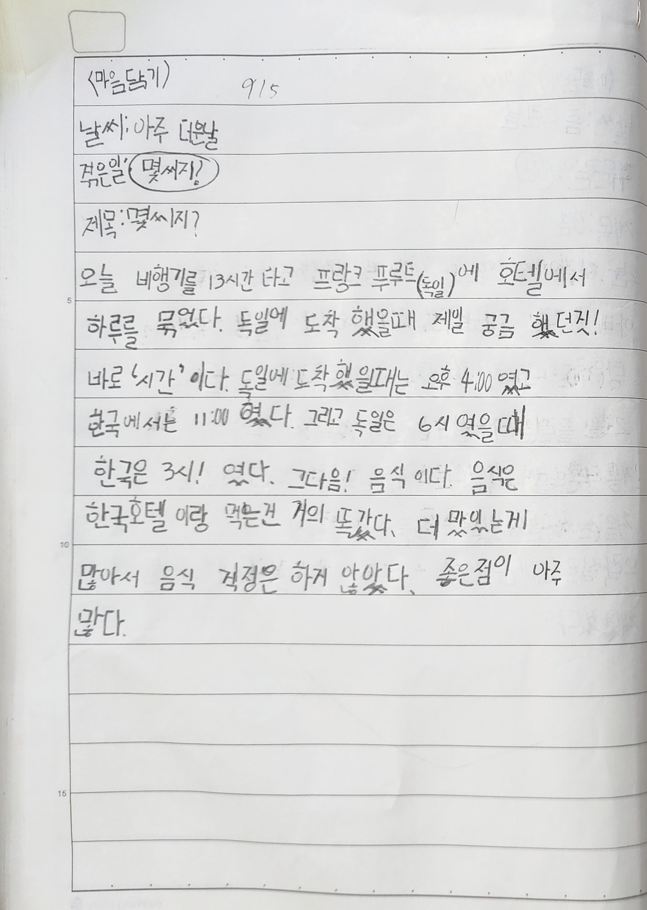 <마음닭기> 9/5
날씨: 아주 더운날
겪은일: 몇씨지?
제목: 몇씨지?
오늘 비행기를 13시간 타고 프랑크 푸루트(독일)에 호텔에서
하루를 묶었다. 독일에 도착 했을때 제일 궁금 했던것!
바로 '시간' 이다. 독일에 도착 했을때는 오후 4:00 였고
한국에서는 11:00 였다. 그리고 독일은 6시 였을때
한국은 3시! 였다. 그다음! 음식 이다. 음식은
한국호텔 이랑 먹는건 거의 똑같다. 더 맛있는게
많아서 음식 걱정은 하게 않았다. 좋은점이 아주
많다.
5
10
15